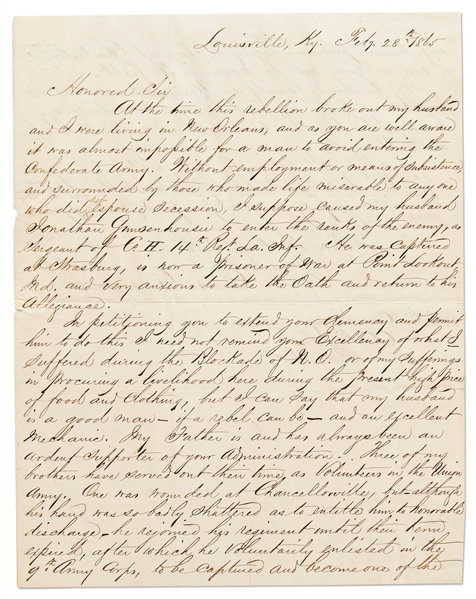 Louisville, Ky. Feby. 28th 1865
Honored Sir
At the time this rebellion broke out my husband
and I were living in New Orleans, and as you are well aware
it was almost impossible for a man to avoid entering the
Confederate Army. Without employment or means of subsistence,
and surrounded by those who made life miserable to any one
who did not espouse Secession, I suppose caused my husband
Jonathan to enter the ranks of the enemy, as
Sergeant of Co. H. 14th Regt La. Inf. He was captured
at Strasburg, is now a prisoner of War at Point Lookout,
Md. and very anxious to take the Oath and return to his
Allegiance.
In petitioning you to extend your Clemency and permit
him to do this I need not remind your Excellency of what I
suffered during the Blockade of N.O. or of my sufferings
in procuring a livelihood here during the present high price
of food and clothing, but I can say that my husband
is a good man – if a rebel can be – and an excellent
Mechanic. My Father is and has always been an
ardent supporter of your Administration. Three of my
brothers have served out their time as Volunteers in the Union
Army. One was wounded at Chancellorville, but – although
his hand was so badly shattered as to entitle him to honorable
discharge – he rejoined his regiment until their term
expired, after which he voluntarily enlisted in the
9th Army Corps, to be captured and become one of the